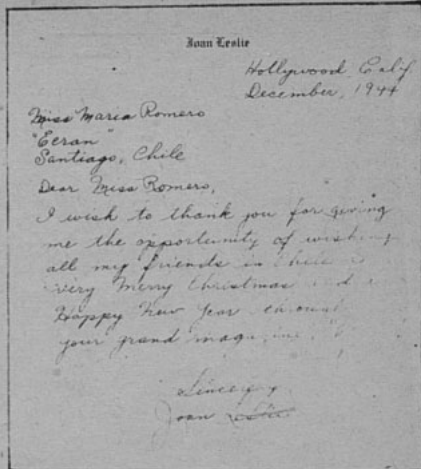 Joan Leslie
Hollywood, Calif
December, 1944
Miss Maria Romero
"Ecran"
Santiago, Chile
Dear Miss Romero,
I wish to thank you for giving
me the opportunity of wishing
all my friends in Chile a
very Merry Christmas and a
Happy New Year through
your grand magazine
Sincerely
Joan Leslie